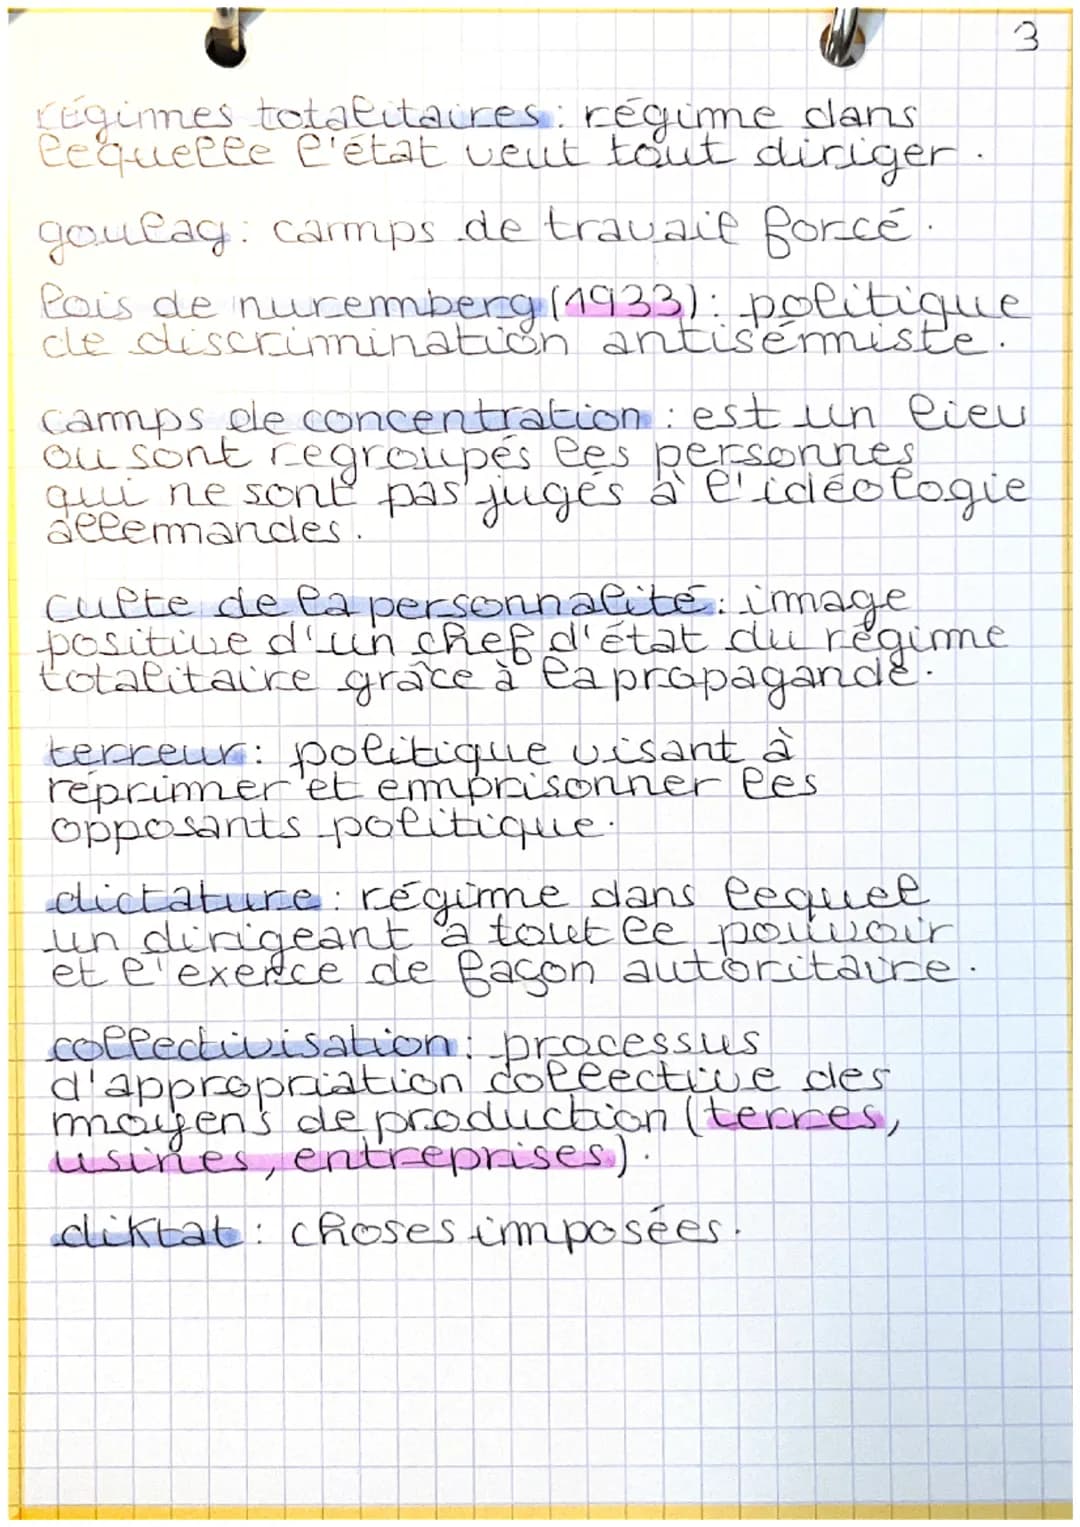 3
régimes totalitaires : régime dans
lequelle l'état veut tout diriger.
goulag : camps de travail forcé.
lois de nuremberg (1933) : politique
de discrimination antisémiste.
camps de concentration : est un lieu
ou sont regroupés les personnes
qui ne sont pas jugés à l'idéologie
allemandes.
culte de la personnalité : image
positive d'un chef d'état du régime
totalitaire grâce à la propagande.
terreur : politique visant à
réprimer et emprisonner les
opposants politique.
dictature : régime dans lequel
un dirigeant a tout le pouvoir
et l'exerce de façon autoritaire.
collectivisation : processus
d'appropriation collective des
moyens de production (terres,
usines, entreprises).
diktat : choses imposées.